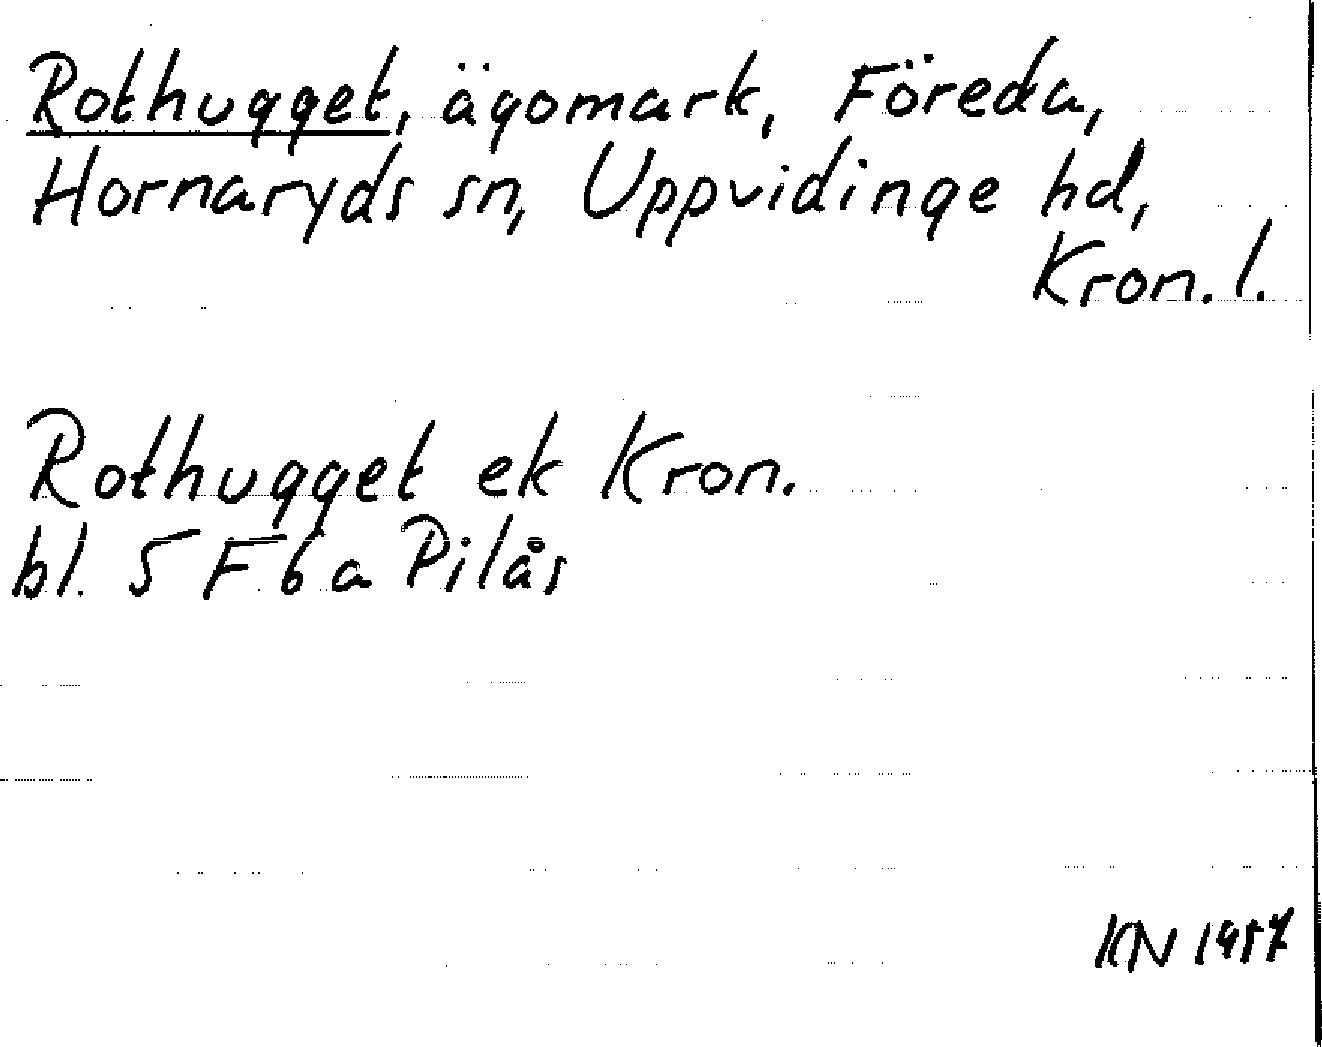 Rothugget, ägomark, Föreda,
Hornaryds sn, Uppvidinge hd,
Kron. l.
Rothugget ek Kron.
bl. 5 F 6 a Pilås
KN 1957